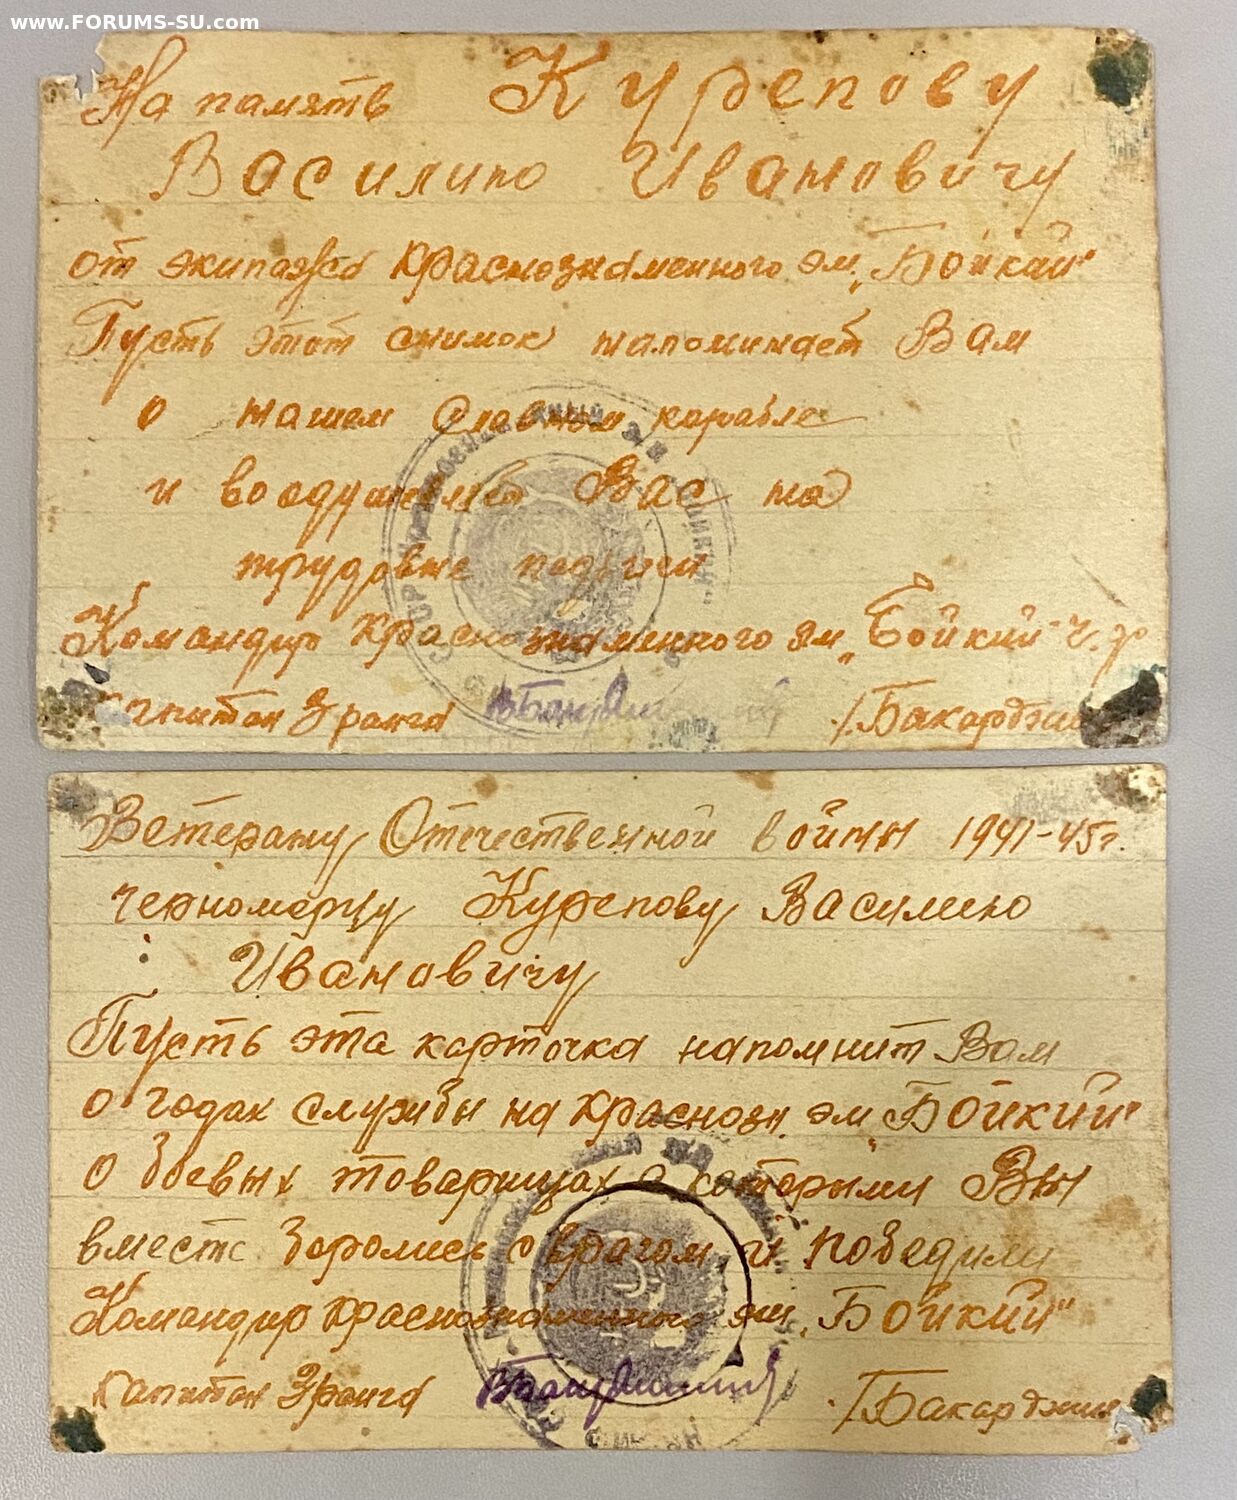 www.FORUMS-SU.com
На память Курепову
Василию Ивановичу
от экипажа Краснознаменного эм „Бойкий"
Пусть этот снимок напоминает Вам
о нашем славном корабле
и воодушевляет Вас на
трудовые подвиги
Командир Краснознаменного эм „Бойкий" Ч.Ф
капитан 3 ранга /Бакарджи
Ветерану Отечественной войны 1941-45г.
черноморцу Курепову Василию
Ивановичу
Пусть эта карточка напомнит Вам
о годах службы на Краснозн. эм „Бойкий"
о боевых товарищах с которыми Вы
вместе боролись с врагом и победили
Командир Краснознаменного эм „Бойкий"
капитан 3 ранга /Бакарджи